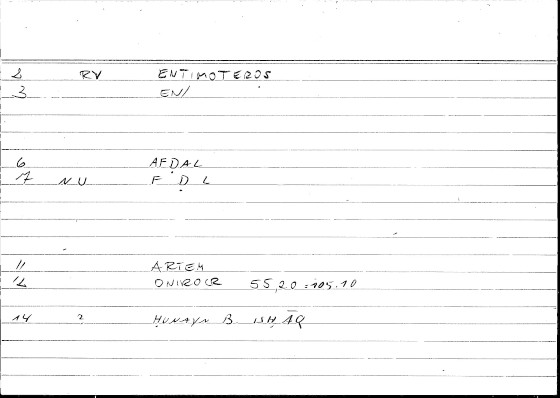 2 RV ENTIMOTEROS
3 EN/
6 AFḌAL
7 NU F Ḍ L
11 ARTEM
12 ONIROCR 55,20 = 105.10
14 2 ḤUNAYN B ISḤĀQ